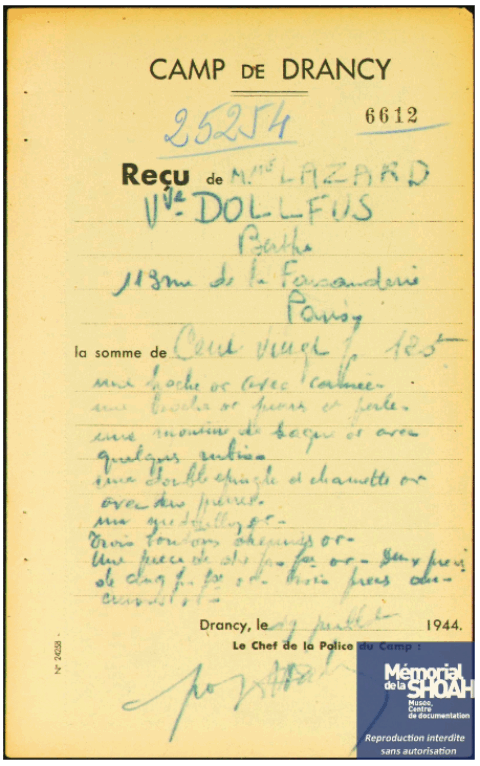 CAMP DE DRANCY
25254
6612
Reçu de Mme LAZARD
Vve DOLLFUS
Berthe
113 rue de la Faisanderie
Paris
la somme de Cent Vingt f 125
une broche or avec camée
une broche or pierres et perle
une monture de bague or avec
quelques rubis
une double épingle et chainette or
avec deux pierres
un médaillon or
trois boutons chemises or
une pièce de dix f. or - deux pièces
de cinq f. or - trois pièces
or
Drancy, le 19 juillet 1944.
Le Chef de la Police du Camp :
N° 24258 -
Mémorial
de la SHOAH
Musée,
Centre
de documentation
Reproduction interdite
sans autorisation